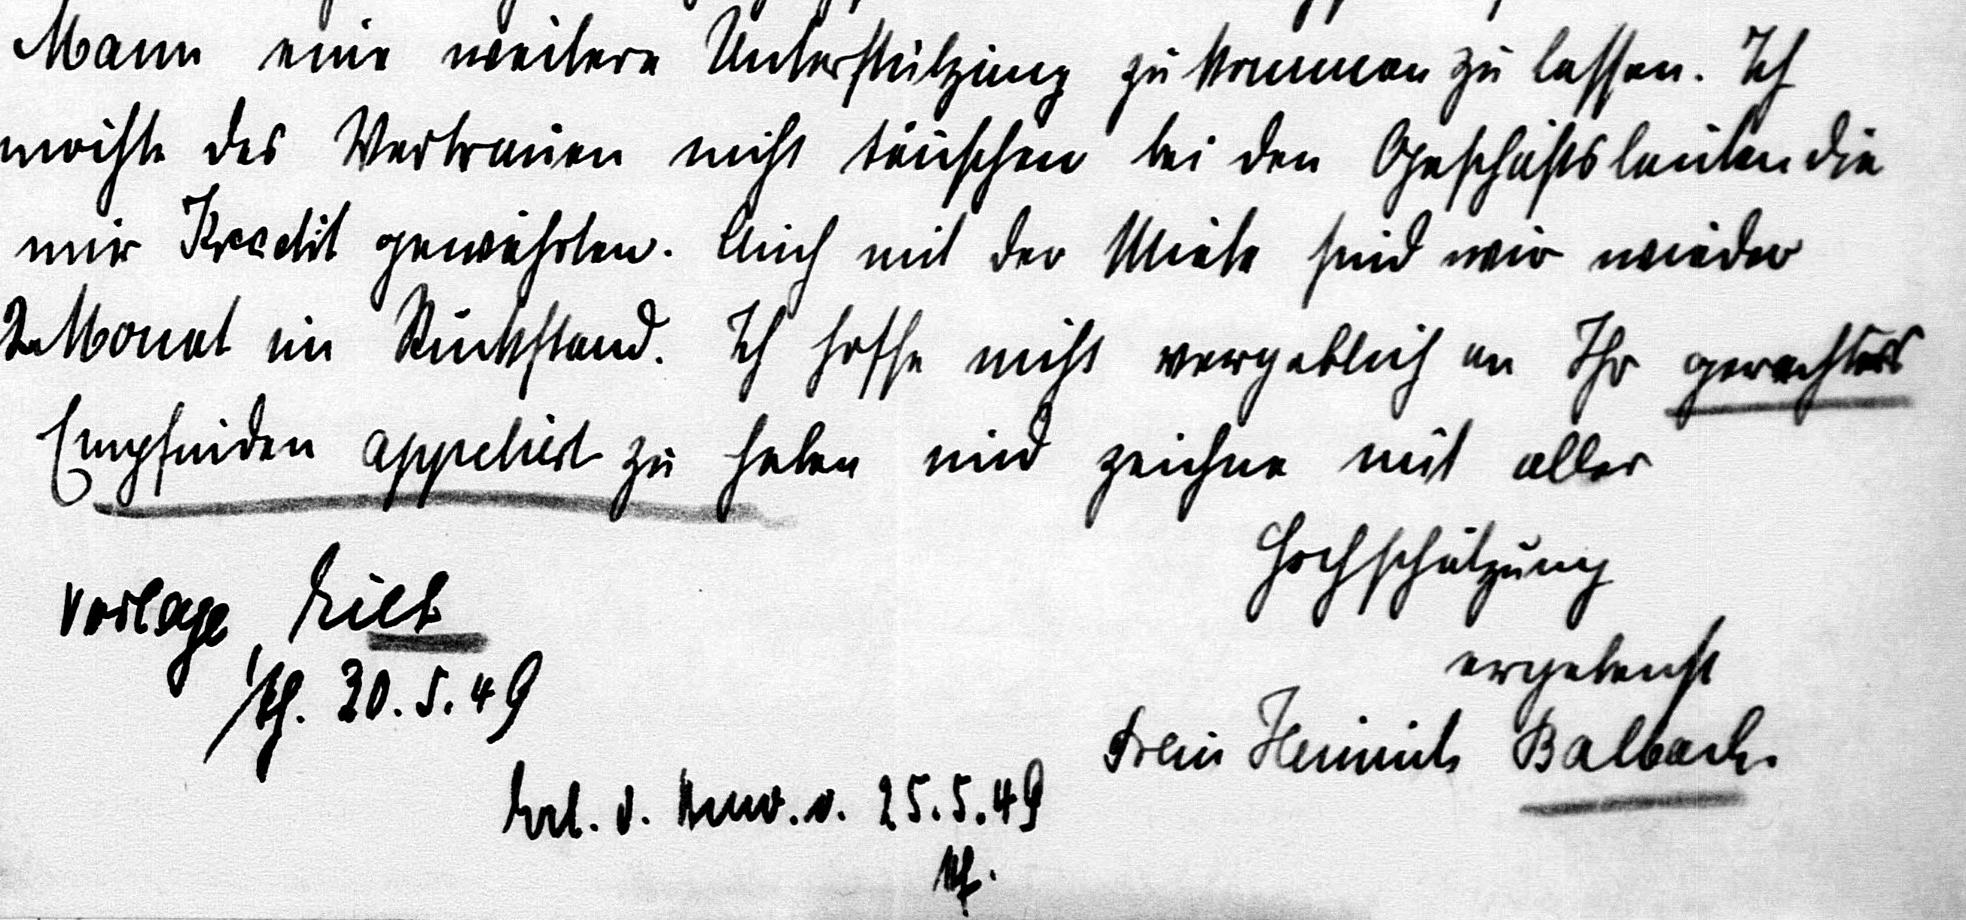 Mann eine weitere Unterstützung zu kommen zu lassen. Ich
möchte das Vertrauen nicht täuschen bei den Geschäftsleuten die
mir Kredit gewährten. Auch mit der Miete sind wir wieder
2 Monat im Rückstand. Ich hoffe nicht vergeblich an Ihr gerechtes
Empfinden appeliert zu haben und zeichne mit aller
Hochschätzung
ergebenst
Frau Heinrich Balbach.
Vorlage Eilt
30.5.49
Erl. d. Anw. v. 25.5.49